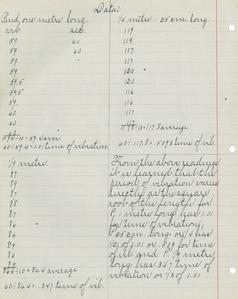 Data
Pend, one metre long.
vib. sec.
59 60
60 60
59 60
59
59.5
59.5
59
60
60
59
÷10=59.4 aver.
60÷59.4=1.01 time of vibration
1/9 metre
87
89
89
88
87
86
86
84
86
÷10=86.4 average
60÷86.4= .347 time of vib.
1/4 metre - 25 cm long.
119
119
117
117
120
120
117
117
116
116
÷10=117.8 average
60÷117.8=.5093 time of vib.
From the above readings
it is learned that the
period of vibration varies
directly as the square
root of the length for
P. 1 metre long has 1.01
for time of vibration,
P. 25 cm. long or 1/4 has
1/2 of 1.01 or .509 for time
of vib. and P. 1/9 metre
long has .347 time of
vibration or 1/3 of 1.01